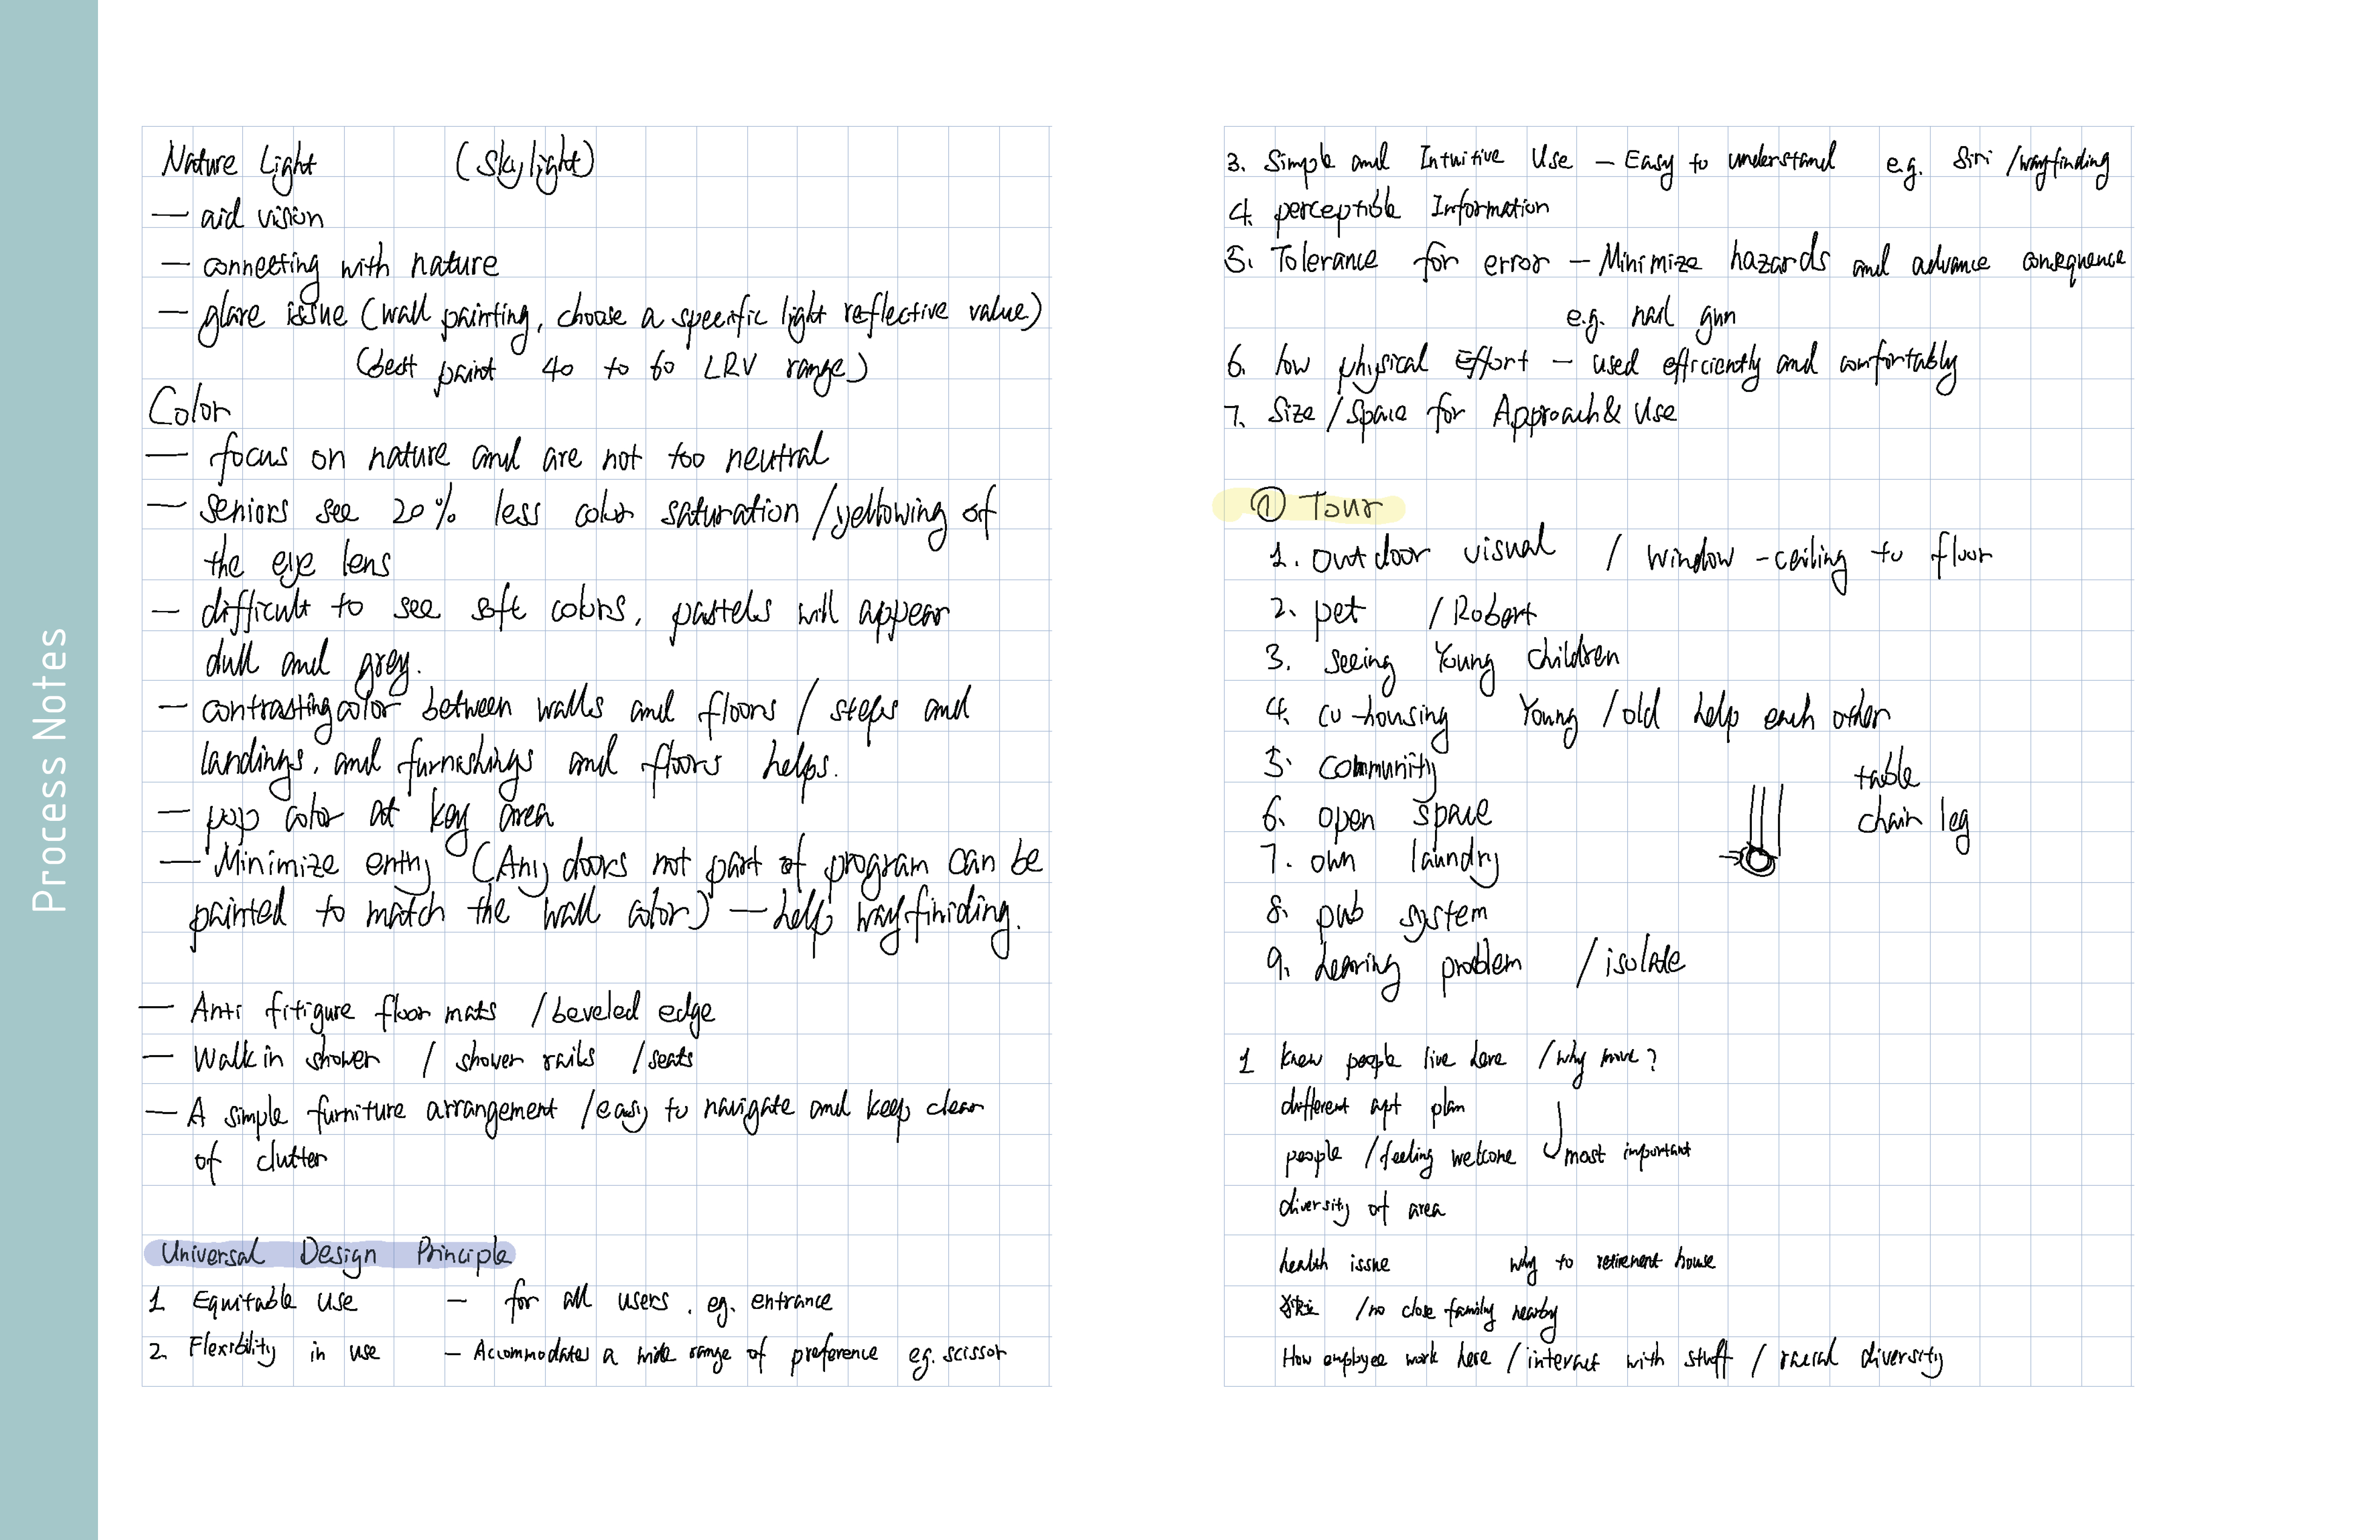 Process Notes
Nature Light (skylight)
— aid vision
— connecting with nature
— glare issue (wall painting, choose a specific light reflective value)
(best paint 40 to 60 LRV range)
Color
— focus on nature and are not too neutral
— seniors see 20% less color saturation / yellowing of
the eye lens
— difficult to see soft colors, pastels will appear
dull and grey.
— contrasting color between walls and floors / steps and
landings, and furnishings and floors helps.
— pop color at key area
— Minimize entry (Any doors not part of program can be
painted to match the wall color) — help wayfiniding.
— Anti fitigure floor mats / beveled edge
— Walk in shower / shower rails / seats
— A simple furniture arrangement / easy to navigate and keep clear
of clutter
Universal Design Principle
1 Equitable use — for all users. eg. entrance
2. Flexibility in use — Accommodates a wide range of preference eg. scissor
3. Simple and Intuitive Use — Easy to understand e.g. Siri / wayfinding
4. perceptible Information
5. Tolerance for error — Minimize hazards and advance consequence
e.g. nail gun
6. low physical Effort — used efficiently and comfortably
7. Size / Space for Approach & Use
① Tour
1. outdoor visual / window - ceiling to floor
2. pet / Robert
3. seeing Young children
4. co-housing Young / old help each other
5. community
table
6. open space
chair leg
7. own laundry
8. pub system
9. hearing problem / isolate
1 knew people live here / why move?
different apt plan
people / feeling welcome most important
diversity of area
health issue why to retirement house
/ no close family nearby
How employee work here / interact with stuff / racial diversity